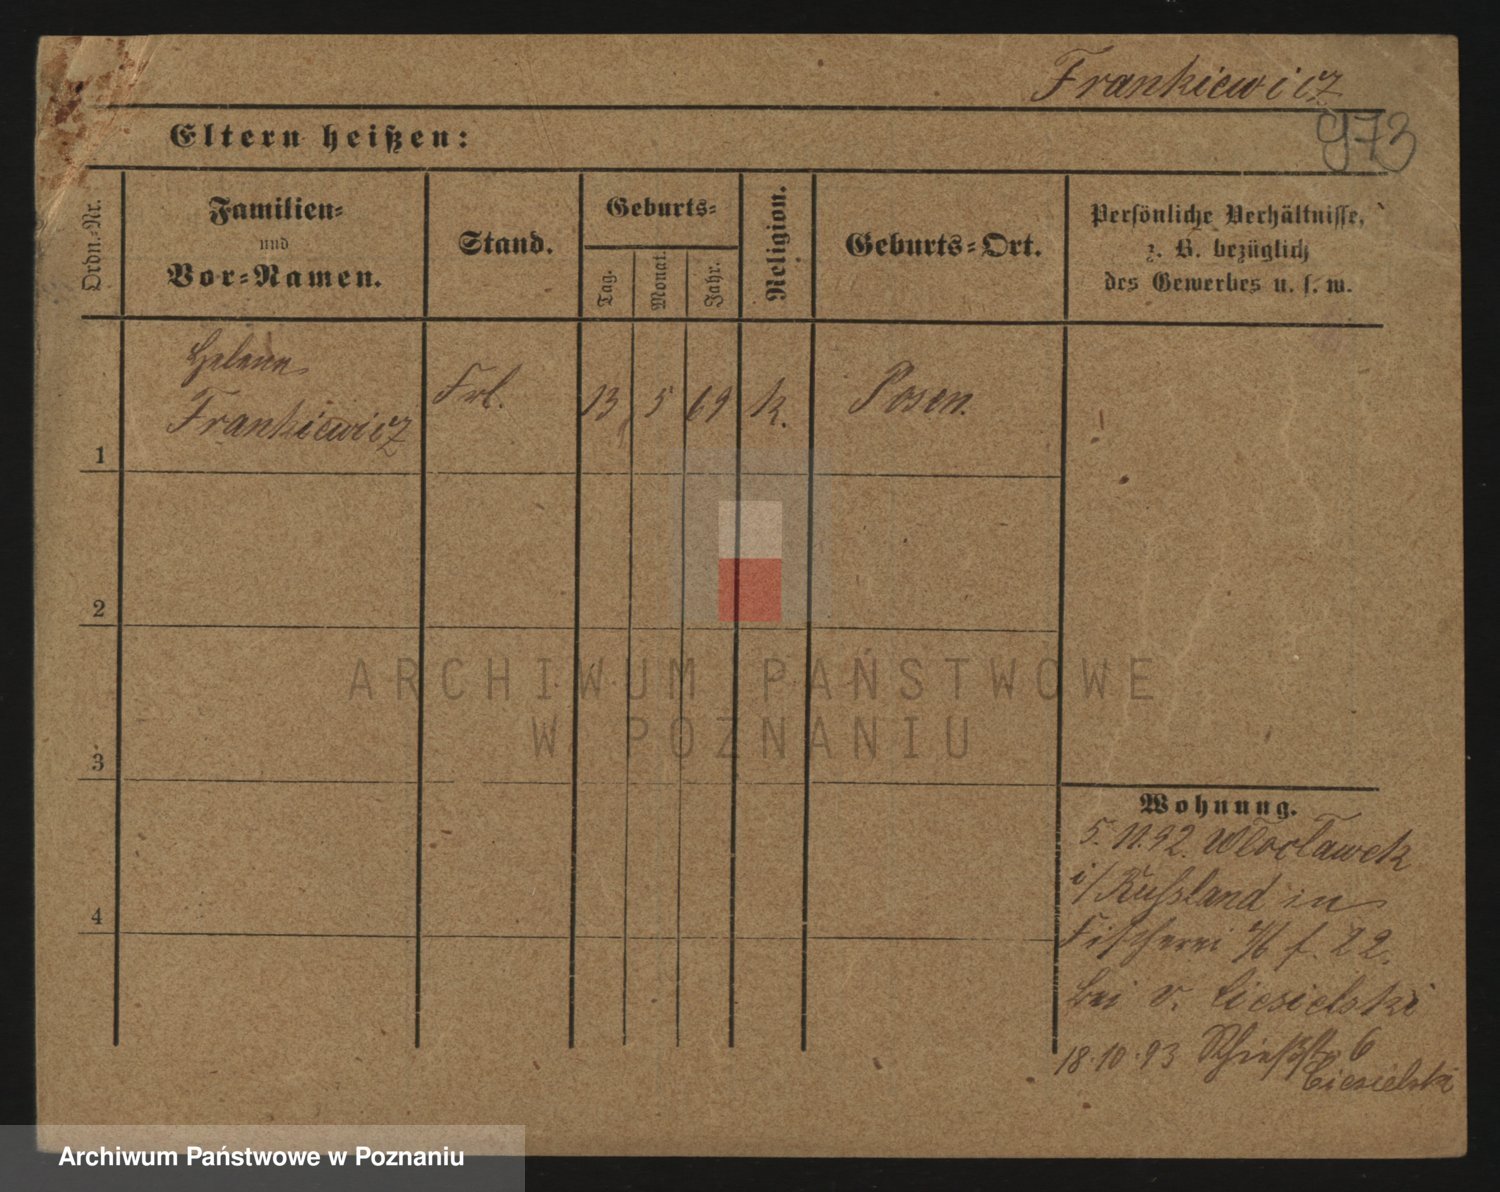 Frankiewicz
973
Eltern heißen:
Ordn.=Nr.
Familien=
und
Vor=Namen.
Stand.
Geburts=
Tag.
Monat.
Jahr.
Religion.
Geburts=Ort.
Persönliche Verhältnisse,
z. B. bezüglich
des Gewerbes u. s. w.
1
Helene
Frankiewicz
Frl.
13
5
69
k.
Posen.
2
3
4
Wohnung.
5. 11. 92. Wloclawek
i/Russland in
Fischerei f. Z 2.
bei v. Ciesielski
18. 10. 93 Schießstr 6
Ciesielski
ARCHIWUM PAŃSTWOWE
W POZNANIU
Archiwum Państwowe w Poznaniu